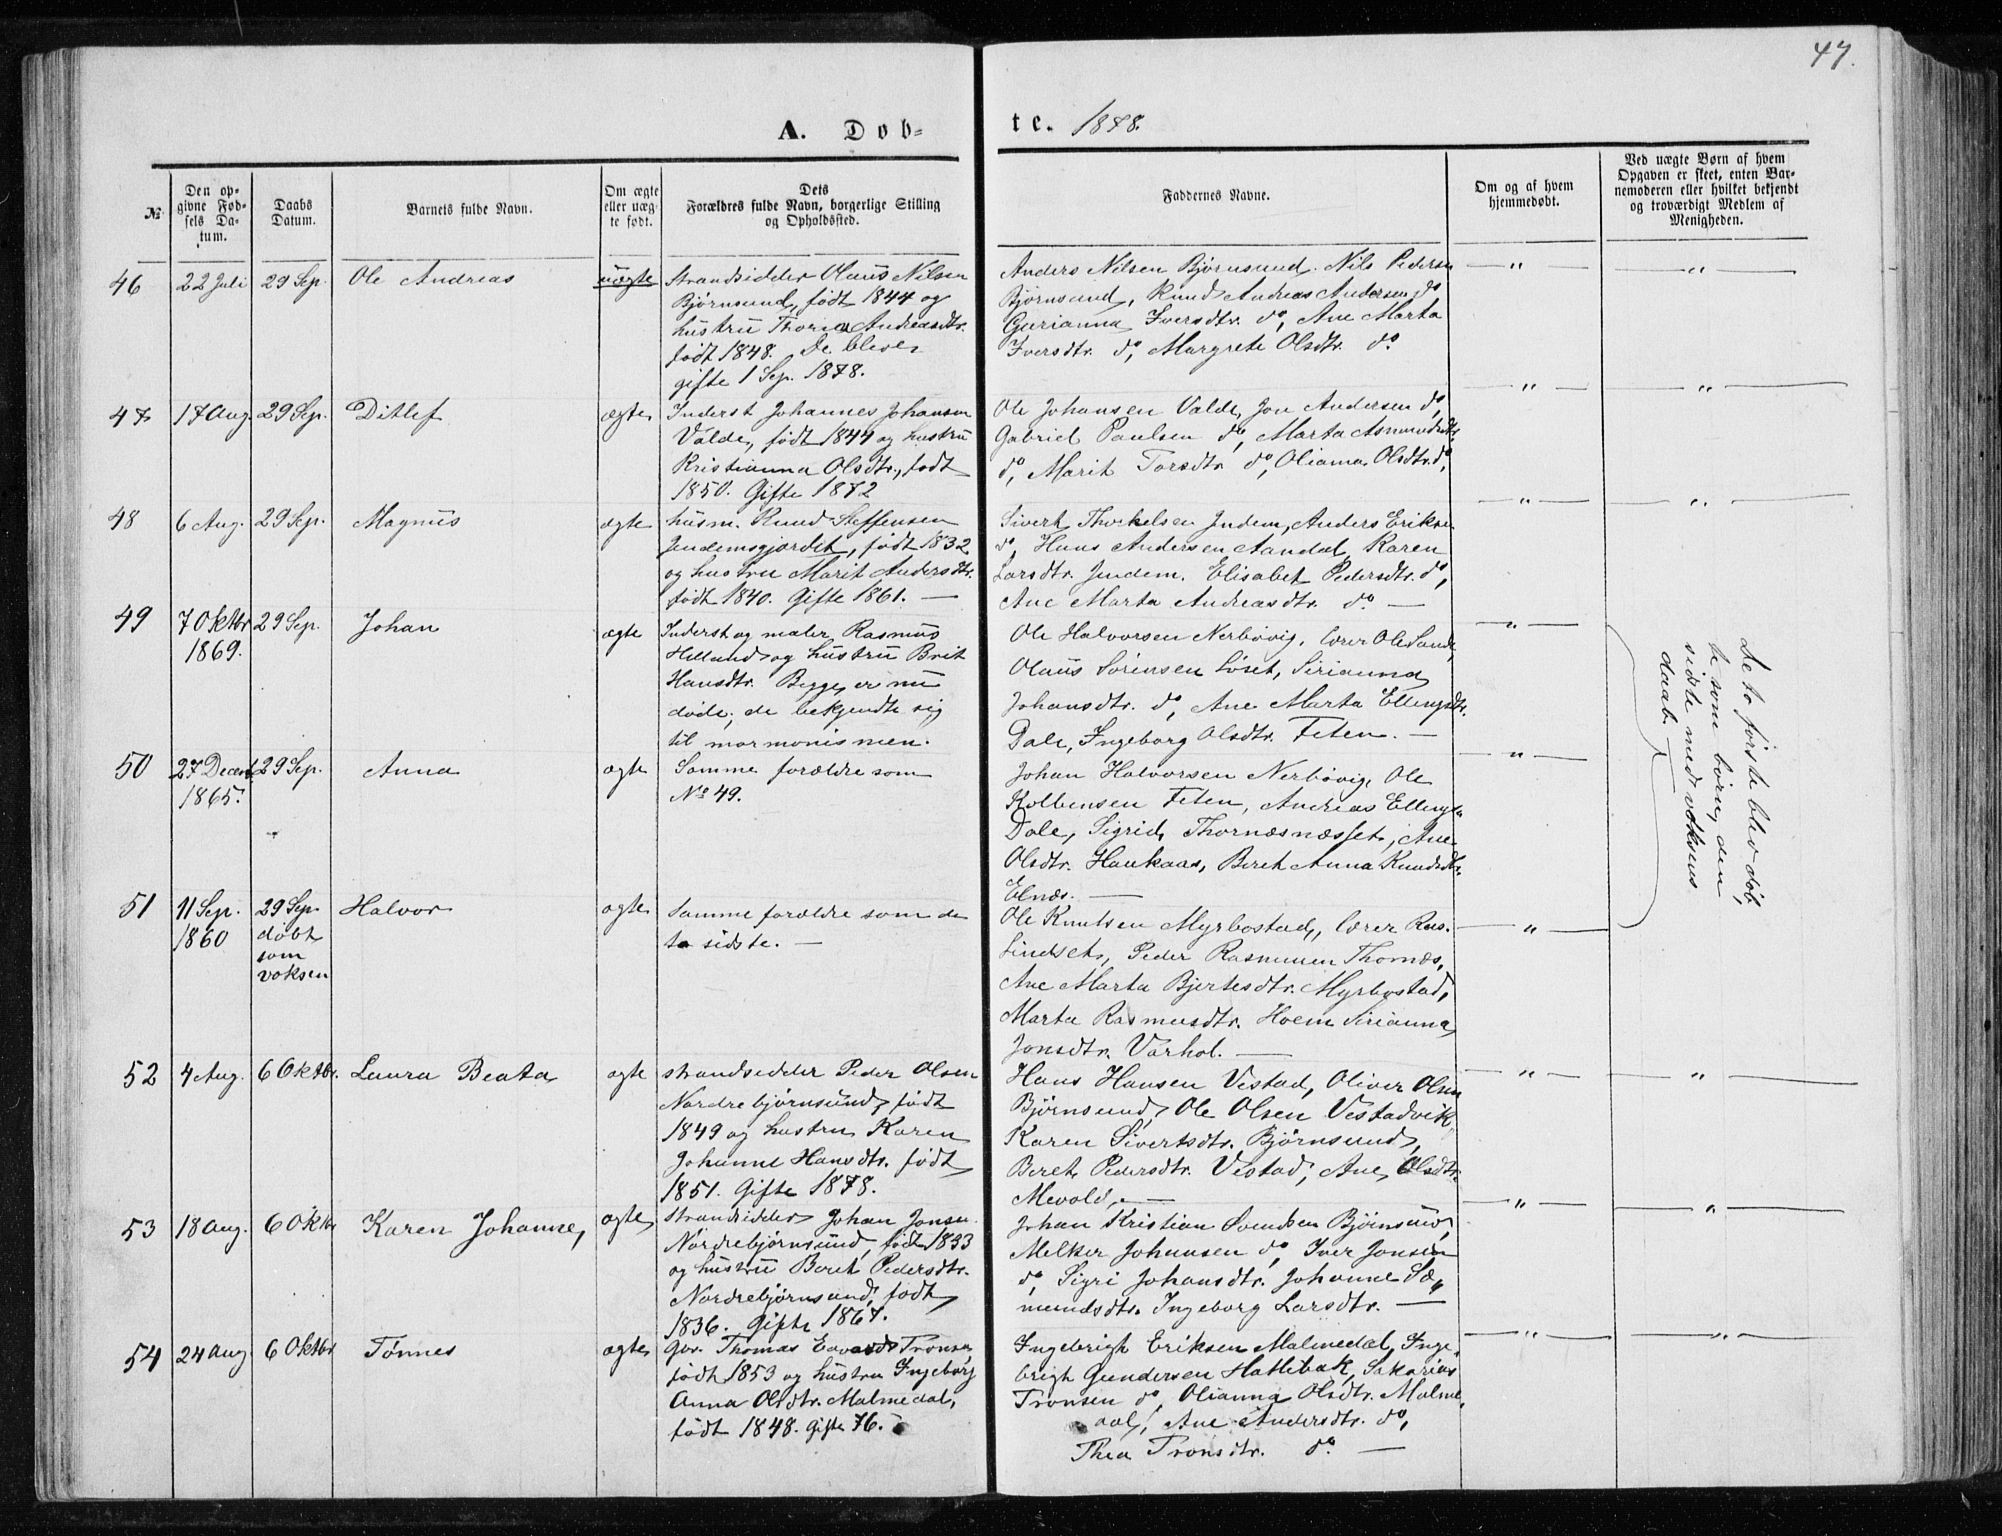 47.
A. Døb-
te. 1878.
№
Den op-
givne Fød-
sels Da-
tum.
Daabs
Datum.
Barnets fulde Navn.
Om ægte
eller uæg-
te født.
Dets
Forældres fulde Navn, borgerlige Stilling
og Opholdssted.
Faddernes Navne.
Om og af hvem
hjemmedøbt.
Ved uægte Børn af hvem
Opgaven er skeet, enten Bar-
nemoderen eller hvilket bekjendt
og troværdigt Medlem af
Menigheden.
46 22 Juli 29 Sep. Ole Andreas uægte
strandsidder Olaus Nilsen
Bjørnsund, født 1844 og
hustru Andreasdtr.
født 1848. De bleve
gifte 1 Sep. 1878.
Anders Nilsen Bjørnsund. Nils Pedersen
Bjørnsund, Knud Andreas Andersen do
Gurianna Iversdtr. do, Ane Marta
Iversdtr. do, Margrete Olsdtr. do
— " — — " —
47 17 Aug 29 Sep. Ditlef ægte
Inderst Johannes Johansen
Valde, født 1844 og hustru
Kristianna Olsdtr., født
1850. Gifte 1872
Ole Johansen Valde, Jon Andersen do,
Gabriel Paulsen do, Marta Asmundsdtr.
do, Marit Torsdtr do, Olianna Olsdtr. do,
— " — — " —
48 6 Aug. 29 Sep. Magnus ægte
husm. Knud Steffensen
Jendemsgjerdet, født 1832
og hustru Marit Andersdtr.
født 1840. Gifte 1861. —
Sivert Thorkelsen Jndem, Anders Eriksen
do, Hans Andersen Aandal, Karen
Larsdtr. Jendem. Elisabet Pedersdtr. do,
Ane Marta Andreasdtr. do. —
— " — — " —
49 7 Oktbr 29 Sep. Johan ægte
1869.
Inderst og maler Rasmus
Hilland og hustru Brit
Hansdtr. Begge er nu
døde; de bekjendte sig
til mormonismen.
Ole Halvorsen Nerbøvig, lærer Ole Sande,
Olaus Sørensen Løset, Sirianna
Johansdtr. do, Ane Marta Ellingsdtr.
Dale, Ingeborg Olsdtr. Feten. —
— " —
De to første blev døb-
te som børn, den
sidste med voksens
daab.
50 27 Decem 29 Sep. Anna ægte
1865.
Samme forældre som
No 49.
Johan Halvorsen Nerbøvig, Ole
Kolbensen Feten, Andreas Ellings.
Dale, Sigrid Thornæsnæsset, Ane
Olsdtr. Haukaas, Beret Anna Knudsdtr.
Elnæs. —
— " —
51 11 Sep. 29 Sep. Halvor ægte
1860 døbt
som
voksen
Samme forældre som de
to sidste. —
Ole Knutsen Myrbostad, lærer Ras.
Lindset, Peder Rasmusen Thornæs,
Ane Marta Bjertesdtr. Myrbostad,
Marta Rasmusdtr. Hoem Sirianna
Jonsdtr. Varhol. —
— " —
52 4 Aug. 6 Oktbr. Laura Beata ægte
strandsidder Peder Olsen
Nordrebjørnsund, født
1849 og hustru Karen
Johanne Hansdtr. født
1851. Gifte 1878.
Hans Hansen Vestad, Oliver Olsen
Bjørnsund, Ole Olsen Vestadvik
Karen Sivertsdtr. Bjørnsund,
Beret Pedersdtr. Vestad, Ane Olsdtr.
Mevold, —
— " — — " —
53 18 Aug. 6 Oktbr Karen Johanne, ægte
strandsidder Johan Jonsen
Nordrebjørnsund, født 1833
og hustru Beret Pedersdtr.
Nordrebjørnsund, født
1836. Gifte 1867.
Johan Kristian Svendsen Bjørnsund,
Melker Johansen do, Iver Jonsen
do, Sigri Johansdtr. Johanne Sæ-
mundsdtr. Ingeborg Larsdtr. —
— " — — " —
54 24 Aug 6 Oktbr Tønnes ægte
Gbr. Thomas Tronsen,
født 1853 og hustru Ingeborg
Anna Olsdtr. Malmedal,
født 1848. Gifte 76.
Ingebrigt Eriksen Malmedal, Inge-
brigt Gundersen Hattebak, Sakarias
Tronsen do, Olianna Olsdtr. Malme-
dal, Ane Andersdtr. do,
Thea Tronsdtr. do. —
— " — — " —